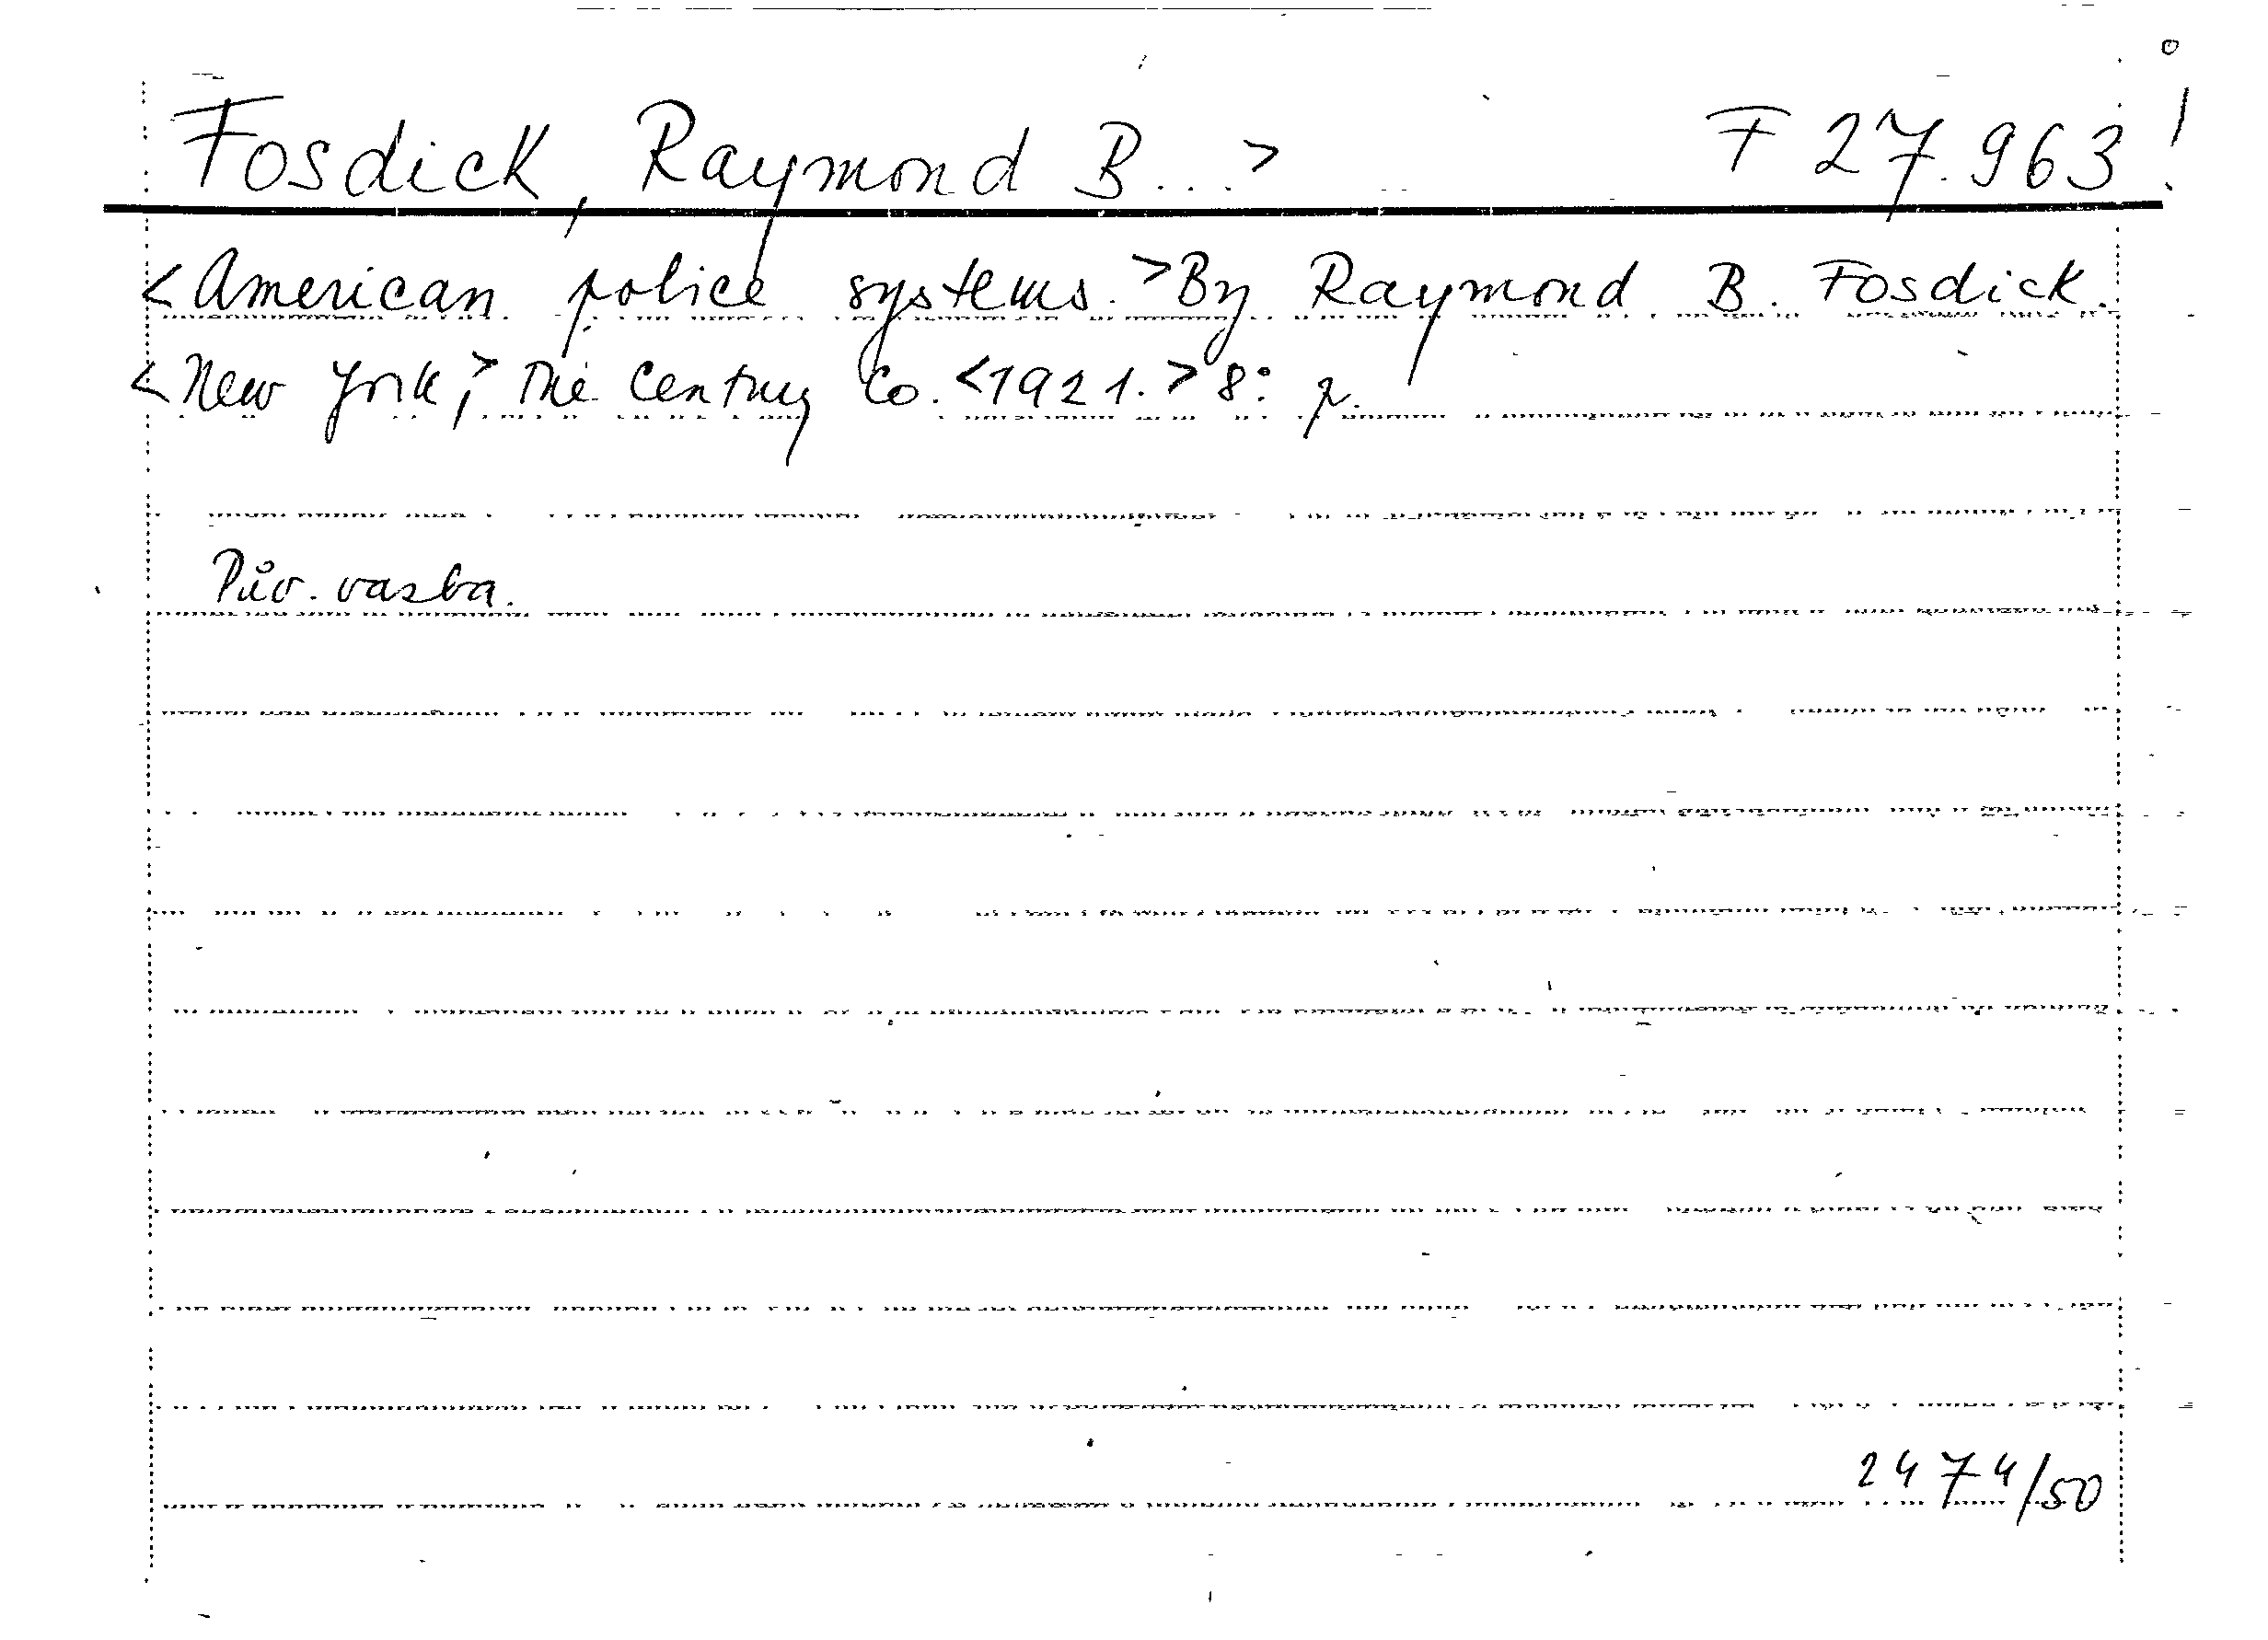 Fosdick, Raymond B...> F 27.963!
<American police systems.> By Raymond B. Fosdick.
<New York,> The Century Co. <1921.> 8° p.
Pův. vazba.
2474/50